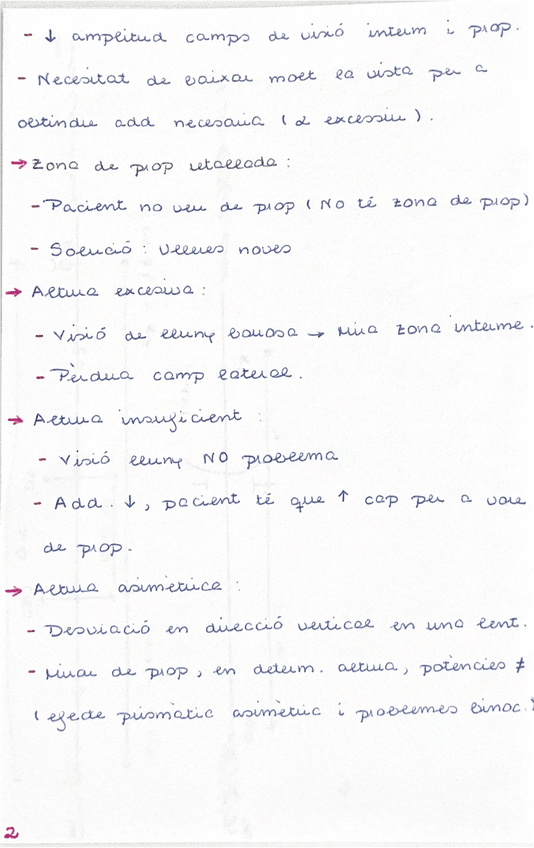 - ↓ amplitud camps de visió interm i prop.
- Necesitat de baixar molt la vista per a
obtindre add necesaria (α excessiu).
→ Zona de prop retallada:
- Pacient no veu de prop (No té zona de prop)
- Solució: Ulleres noves
→ Altura excesiva:
- Visió de lluny borrosa → Mira zona interme.
- Pèrdua camp lateral.
→ Altura insuficient:
- Visió lluny NO problema
- Add. ↓, pacient té que ↑ cap per a vore
de prop.
→ Altura asimètrica:
- Desviació en direcció vertical en una lent.
- Mirar de prop, en determ. altura, potències ≠
(efecte prismàtic asimètric i problemes binoc.)
2